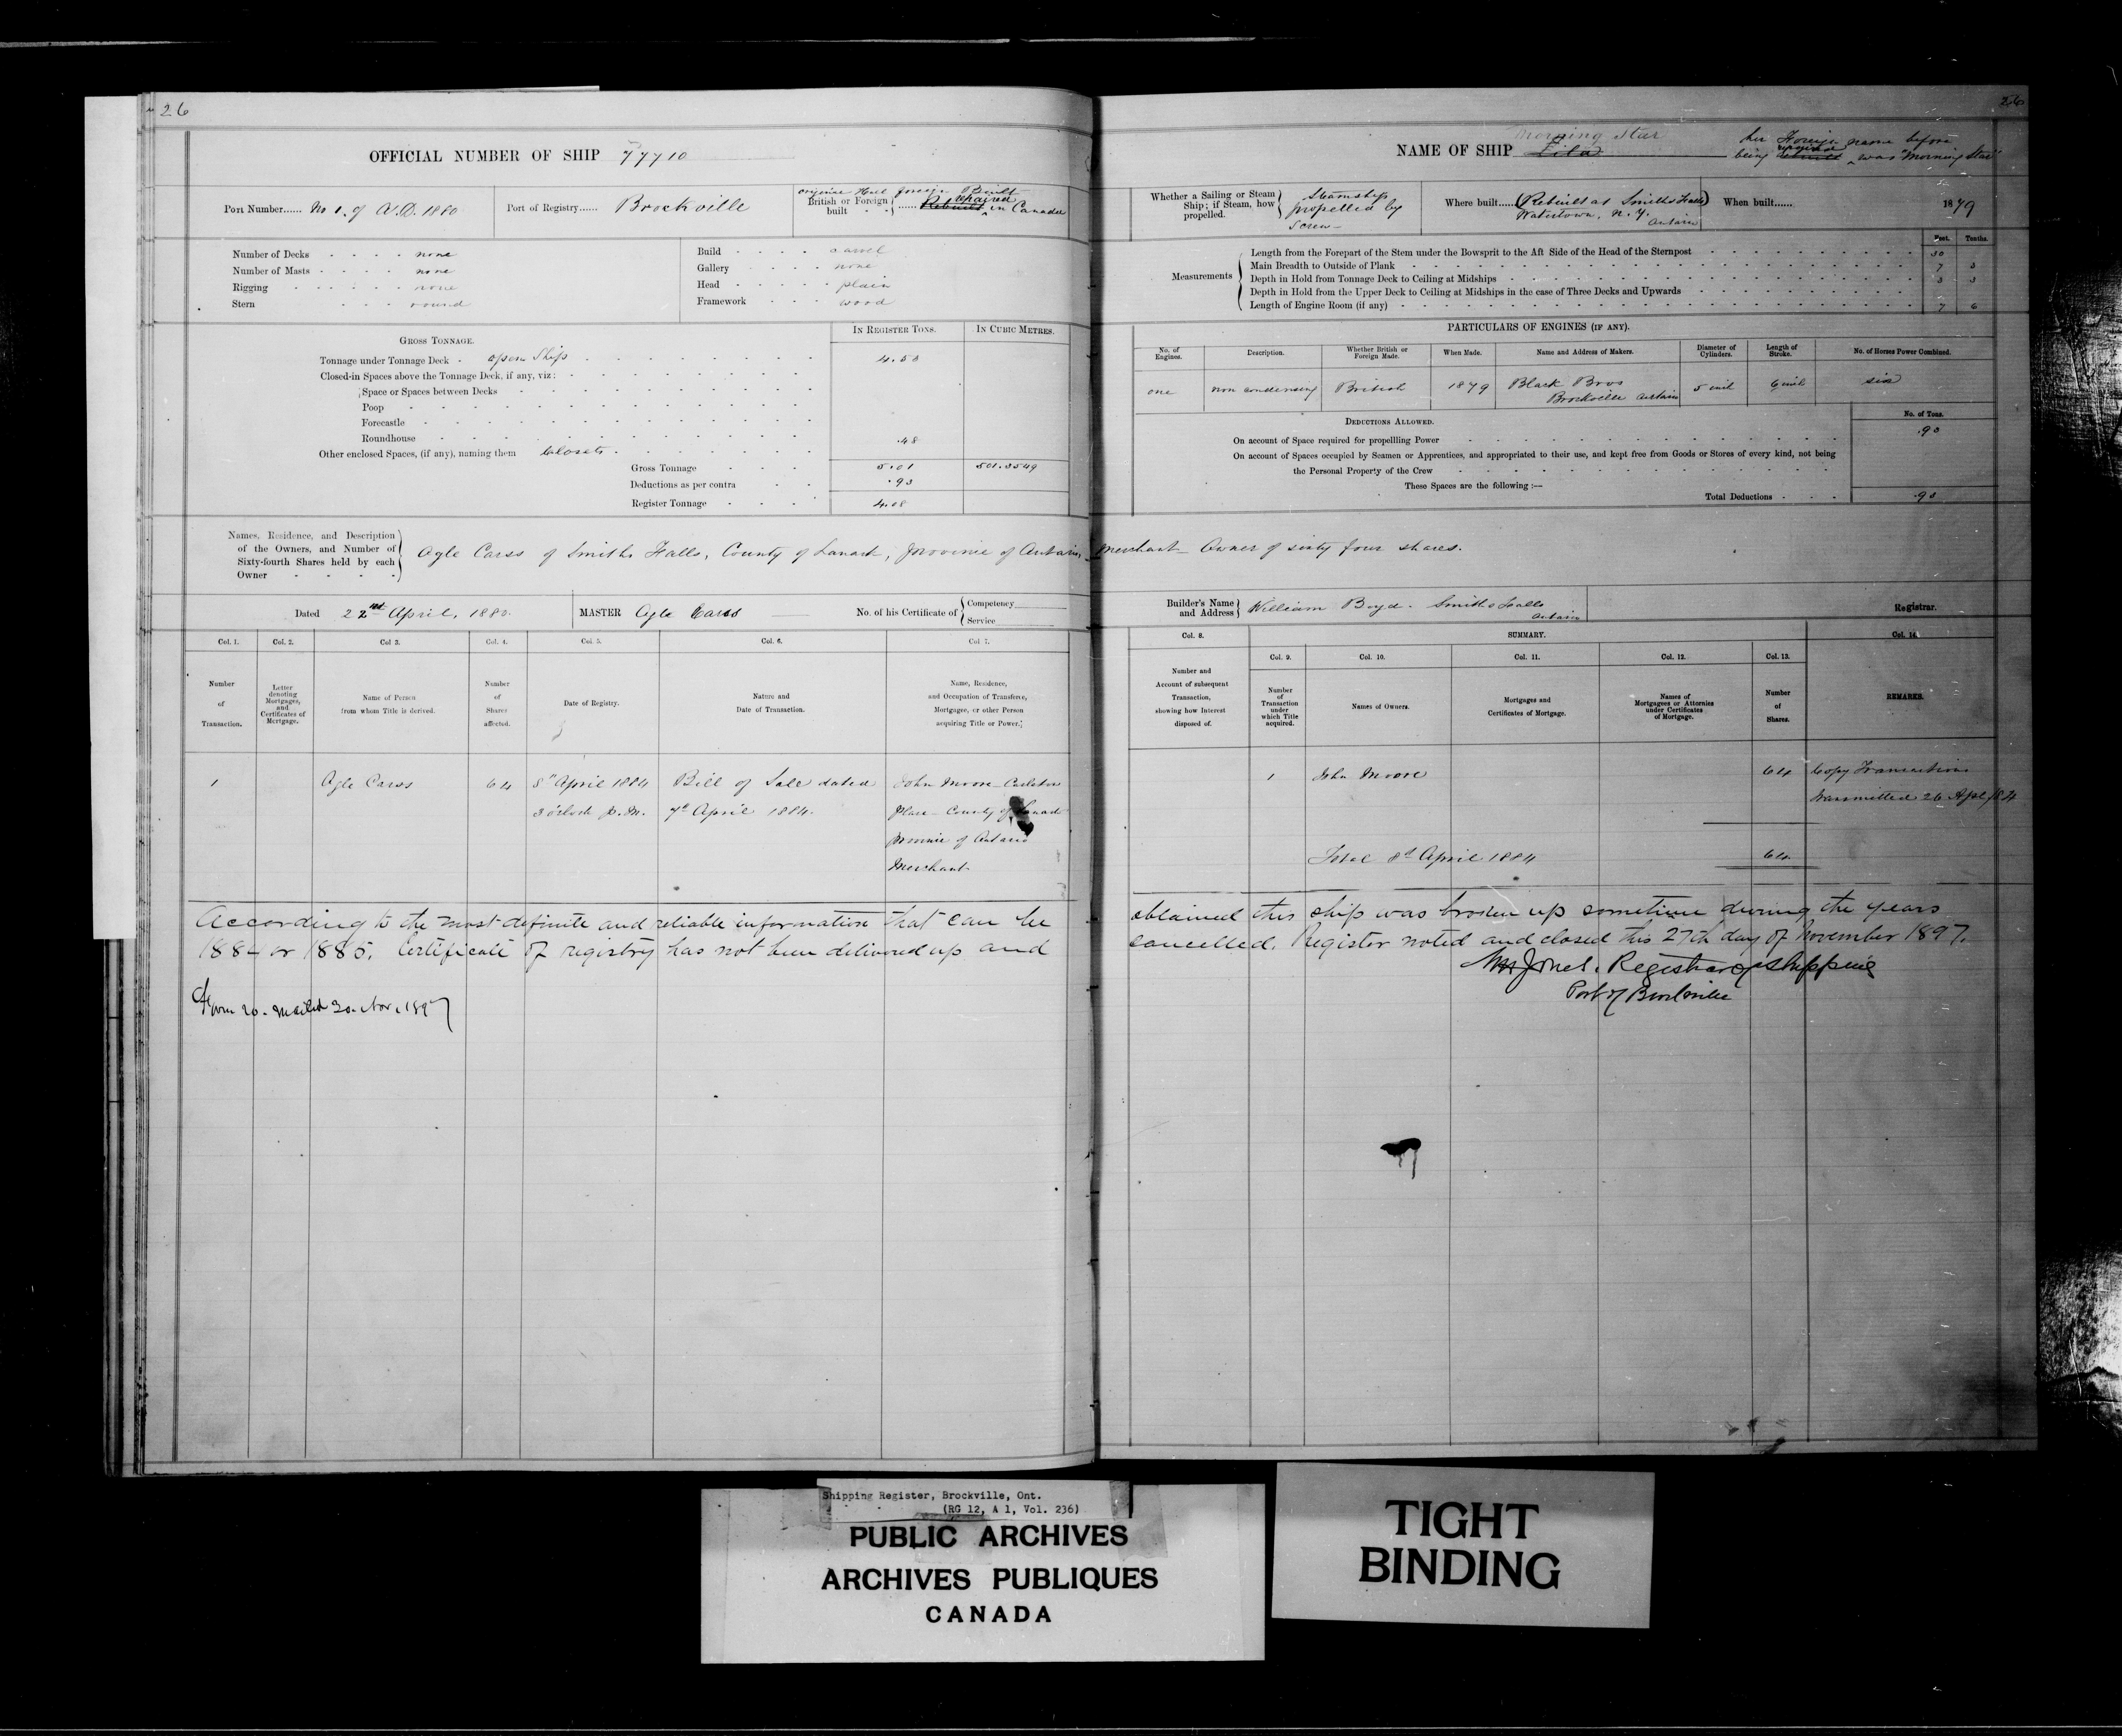 26
OFFICIAL NUMBER OF SHIP 77710
Port Number...... No 1. of A.D. 1880
Port of Registry...... Brockville
original Hull foreign Built
British or Foreign built - - ...... Rebuilt repaired in Canada
Number of Decks - - - - none
Number of Masts - - - - none
Rigging - - - - - none
Stern - - - - round
Build - - - - carvel
Gallery - - - - none
Head - - - - plain
Framework - - - wood
IN REGISTER TONS.
IN CUBIC METRES.
GROSS TONNAGE.
Tonnage under Tonnage Deck - open Ship 4.53
Closed-in Spaces above the Tonnage Deck, if any, viz:
Space or Spaces between Decks
Poop
Forecastle
Roundhouse
Other enclosed Spaces, (if any), naming them Closets .48
Gross Tonnage 5.01 501.3549
Deductions as per contra .93
Register Tonnage 4.08
Names, Residence, and Description of the Owners, and Number of Sixty-fourth Shares held by each Owner
Ogle Carss of Smiths Falls, County of Lanark, Province of Ontario,
Dated 22nd April, 1880.
MASTER Ogle Carss
No. of his Certificate of Competency Service
Col. 1. Col. 2. Col 3. Col. 4. Col 5. Col. 6. Col 7.
Number of Transaction.
Letter denoting Mortgages, and Certificates of Mortgage.
Name of Person from whom Title is derived.
Number of Shares affected.
Date of Registry.
Nature and Date of Transaction.
Name, Residence, and Occupation of Transferee, Mortgagee, or other Person acquiring Title or Power.
1 Ogle Carss 64 8th April 1884 Bill of Sale dated John Moore Carleton
3 o'clock p.m. 7th April 1884. Place - County of Lanark
Province of Ontario
Merchant
According to the most definite and reliable information that can be
1884 or 1885. Certificate of registry has not been delivered up and
Form 20. mailed 30. Nov. 1897
26
NAME OF SHIP Lila
Morning Star
her Foreign name before
being rebuilt repaired was "Morning Star"
Whether a Sailing or Steam Ship; if Steam, how propelled.
Steamship
propelled by
Screw
Where built...... (Rebuilt at Smiths Falls)
Watertown, N.Y. Ontario
When built...... 1879
Feet. Tenths.
Measurements
Length from the Forepart of the Stem under the Bowsprit to the Aft Side of the Head of the Sternpost 30
Main Breadth to Outside of Plank 7 3
Depth in Hold from Tonnage Deck to Ceiling at Midships 3 3
Depth in Hold from the Upper Deck to Ceiling at Midships in the case of Three Decks and Upwards
Length of Engine Room (if any) 7 6
PARTICULARS OF ENGINES (IF ANY).
No. of Engines.
Description.
Whether British or Foreign Made.
When Made.
Name and Address of Makers.
Diameter of Cylinders.
Length of Stroke.
No. of Horses Power Combined.
one non condensing British 1879 Black Bros 5 inch 6 inch six
Brockville Ontario
DEDUCTIONS ALLOWED.
No. of Tons.
On account of Space required for propelling Power .93
On account of Spaces occupied by Seamen or Apprentices, and appropriated to their use, and kept free from Goods or Stores of every kind, not being
the Personal Property of the Crew
These Spaces are the following :—
Total Deductions - - - .93
Merchant - Owner of sixty four shares.
Builder's Name and Address William Boyd. Smiths Falls
Ontario
Registrar.
Col. 8.
SUMMARY.
Col. 14.
Col. 9. Col. 10. Col. 11. Col. 12. Col. 13.
Number and Account of subsequent Transaction, showing how Interest disposed of.
Number of Transaction under which Title acquired.
Names of Owners.
Mortgages and Certificates of Mortgage.
Names of Mortgagees or Attornies under Certificates of Mortgage.
Number of Shares.
REMARKS.
1 John Moore 64 Copy Transaction
transmitted 26 Apl /84
Total 8th April 1884 64
obtained this ship was broken up sometime during the years
cancelled. Register noted and closed this 27th day of November 1897.
Jones. Registrar of Shipping
Port of Brockville
Shipping Register, Brockville, Ont.
(RG 12, A 1, Vol. 236)
PUBLIC ARCHIVES
ARCHIVES PUBLIQUES
CANADA
TIGHT
BINDING